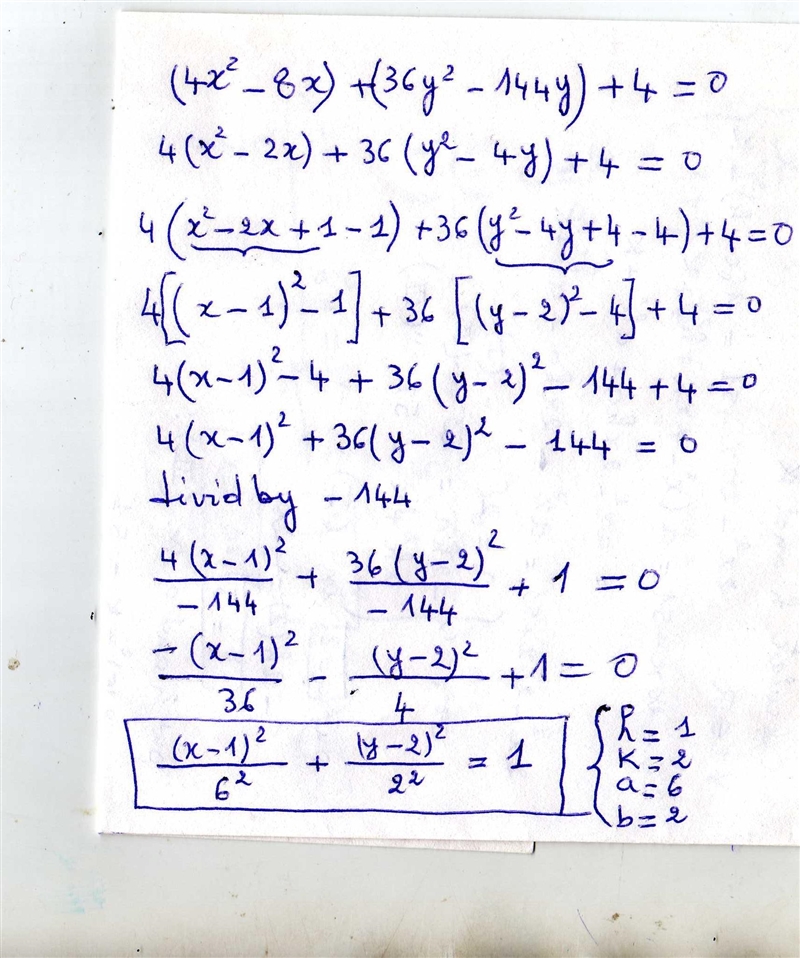 (4x² - 8x) + (36y² - 144y) + 4 = 0
4(x² - 2x) + 36(y² - 4y) + 4 = 0
4(x² - 2x + 1 - 1) + 36(y² - 4y + 4 - 4) + 4 = 0
4[(x - 1)² - 1] + 36[(y - 2)² - 4] + 4 = 0
4(x - 1)² - 4 + 36(y - 2)² - 144 + 4 = 0
4(x - 1)² + 36(y - 2)² - 144 = 0
divid by - 144
4(x - 1)²/-144 + 36(y - 2)²/-144 + 1 = 0
-(x - 1)²/36 - (y - 2)²/4 + 1 = 0
(x - 1)²/6² + (y - 2)²/2² = 1
h = 1
k = 2
a = 6
b = 2